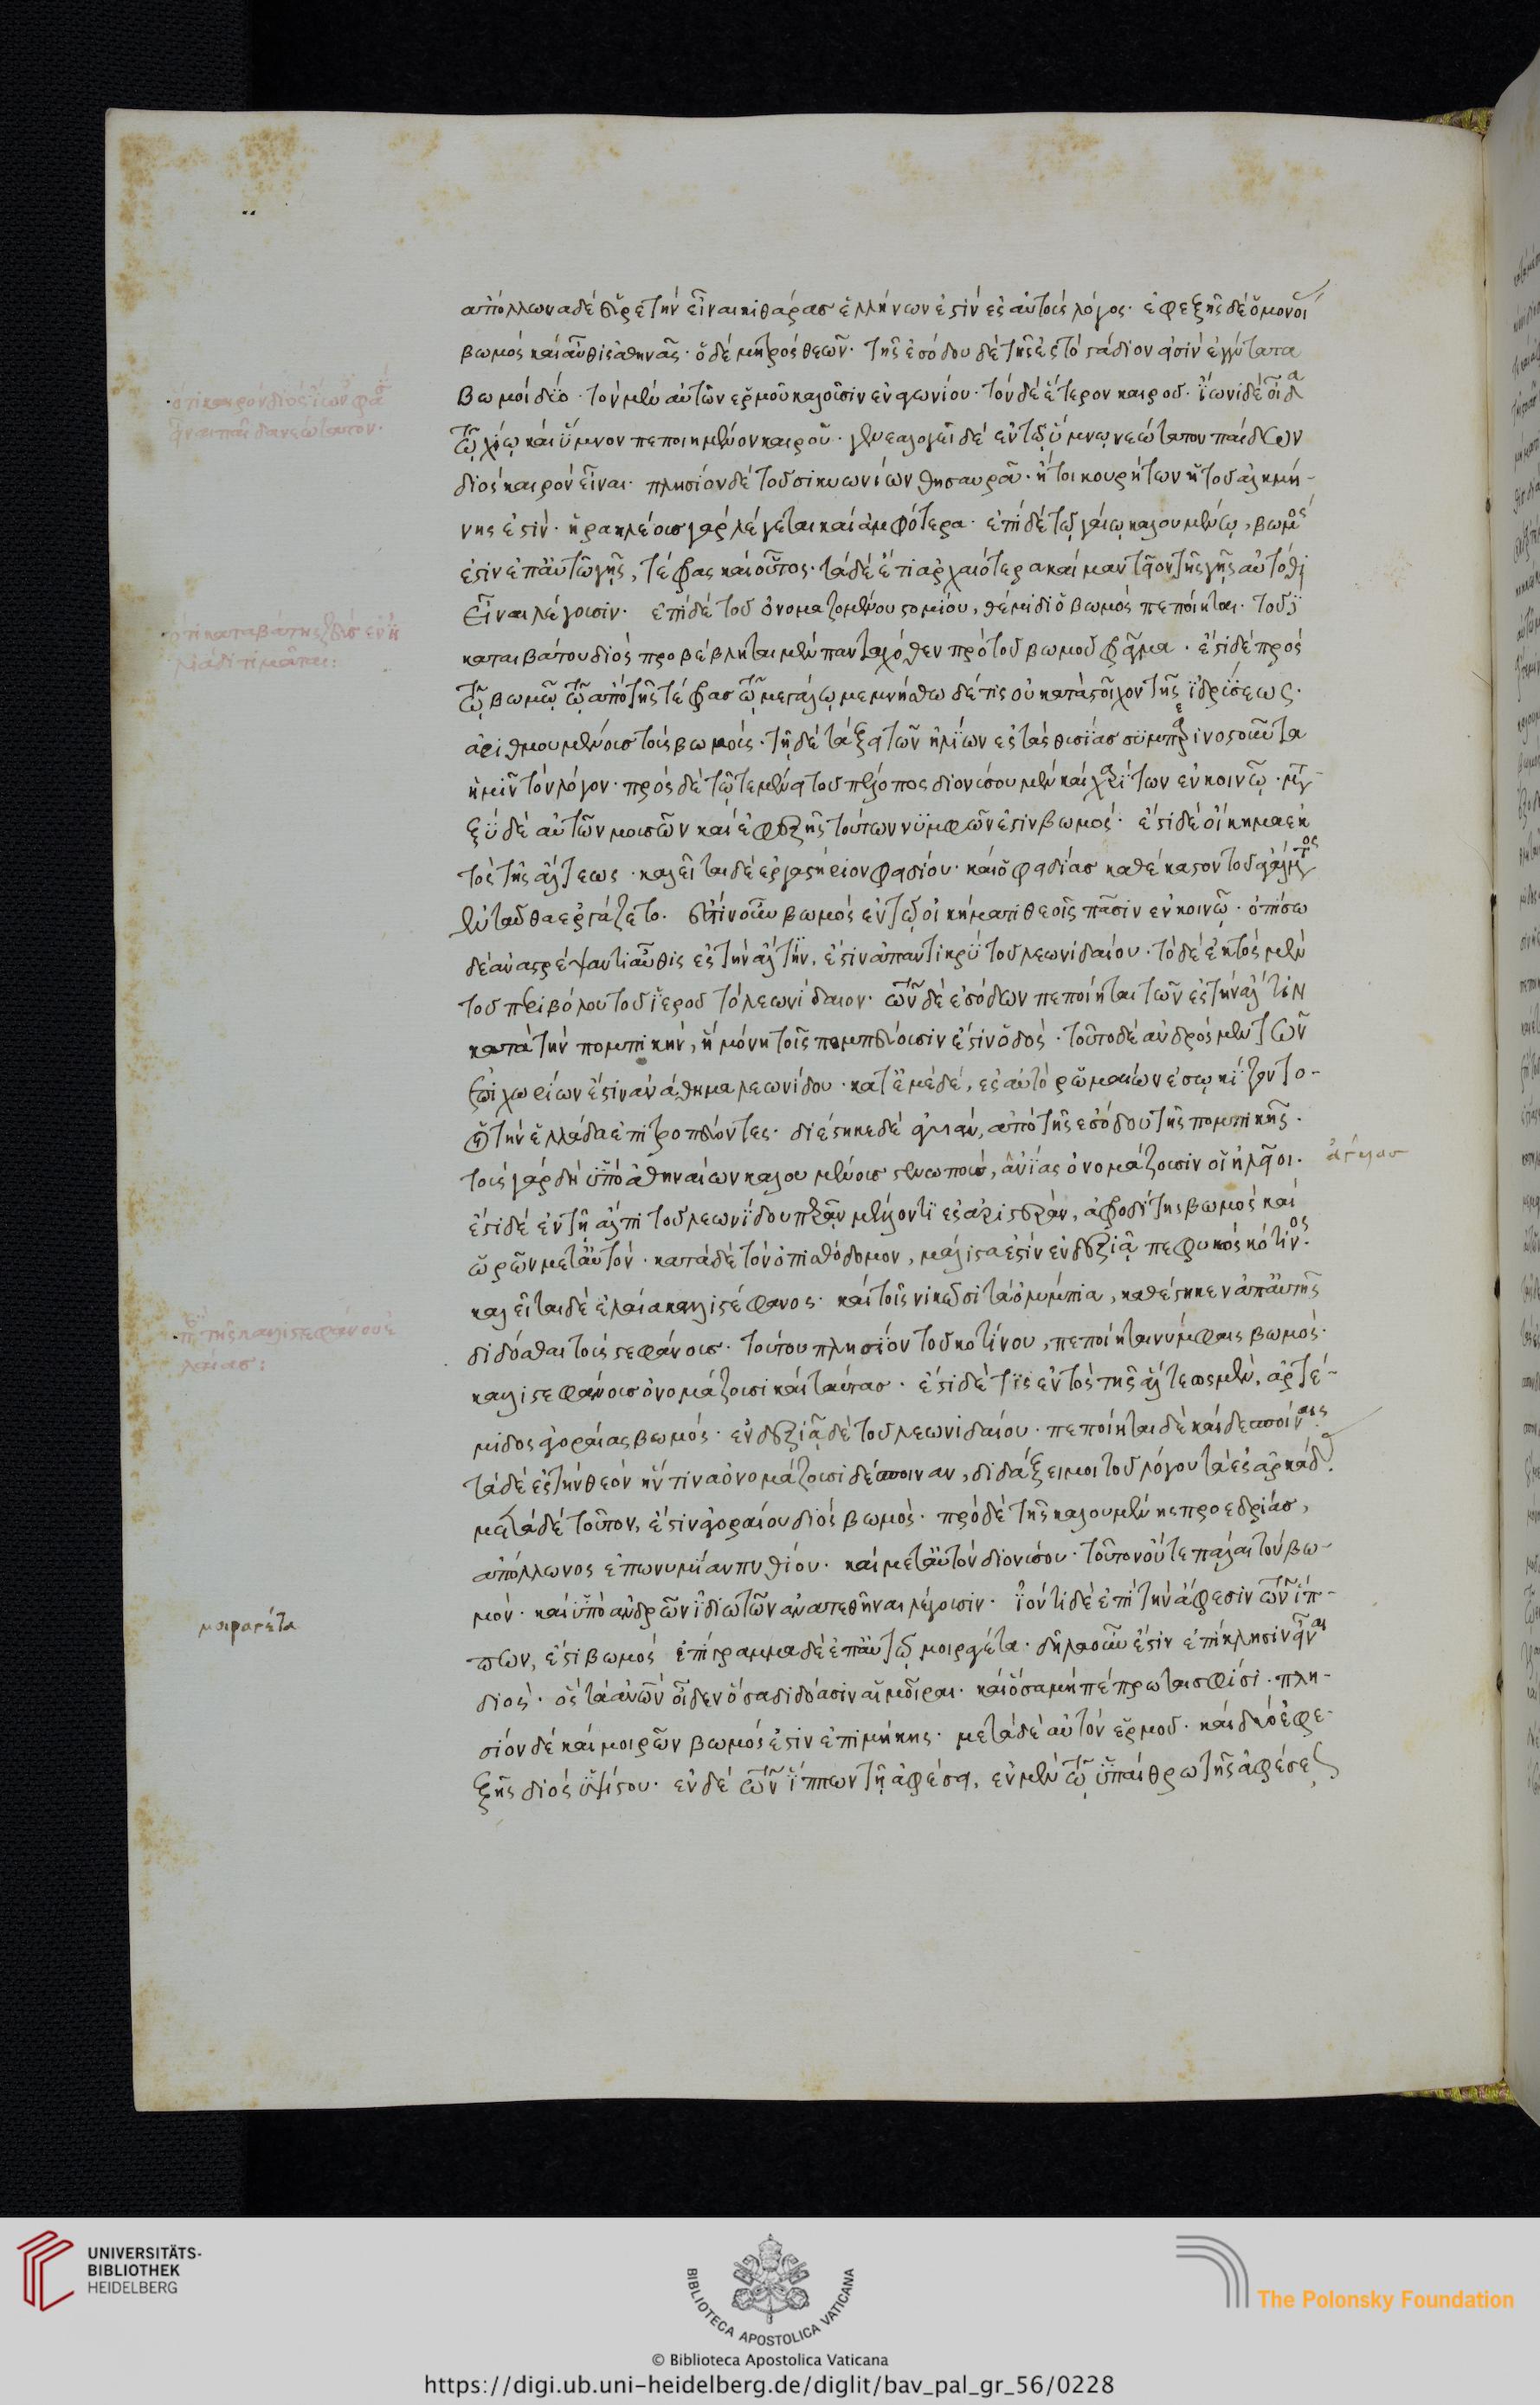 ἀπόλλωνα δὲ εὑρέτην εἶναι κιθάρας ἑλλήνων ἐστὶν ἐς αὐτοὺς λόγος· ἐφεξῆς δὲ ὁμονοί
βωμὸς καὶ αὖθις ἀθηνᾶς· ὁ δὲ μητρὸς θεῶν· τῆς ἐσόδου δὲ τῆς ἐς τὸ στάδιον εἰσὶν ἐγγύτατα
βωμοὶ δύο· τὸν μὲν αὐτῶν ἑρμοῦ καλοῦσιν ἐναγωνίου· τὸν δὲ ἕτερον καιροῦ· ἴωνι δὲ οἶδα
τῷ χίῳ καὶ ὕμνον πεποιημένον καιροῦ· γενεαλογεῖ δὲ ἐν τῷ ὕμνῳ νεώτατον παίδων
διὸς καιρὸν εἶναι· πλησίον δὲ τοῦ σικυωνίων θησαυροῦ· ἤτοι κουρήτων ἢ τοῦ ἀλκμή-
νης ἐστίν· ἡρακλέους γὰρ λέγεται καὶ ἀμφότερα· ἐπὶ δὲ τῷ γαίῳ καλουμένῳ, βωμός
ἐστιν ἐπ' αὐτῷ γῆς, τέφρας καὶ οὗτος· τὰ δὲ ἔτι ἀρχαιότερα καὶ μαντεῖον τῆς γῆς αὐτόθι
εἶναι λέγουσιν· ἐπὶ δὲ τοῦ ὀνομαζομένου στομίου, θέμιδι ὁ βωμὸς πεποίηται· τοῦ
καταιβάτου διὸς προβέβληται μὲν πανταχόθεν πρὸ τοῦ βωμοῦ φράγμα· ἔστι δὲ πρὸς
τῷ βωμῷ τῷ ἀπὸ τῆς τέφρας τῷ μεγάλῳ μεμνήσθω δέ τις οὐ κατὰ στοῖχον τῆς ἱδρύσεως·
ἀριθμουμένους τοὺς βωμούς· τῇ δὲ τάξει τῶν ἠλείων ἐς τὰς θυσίας συμπερινοστοῦντα
ἡμῖν τὸν λόγον· πρὸς δὲ τῷ τεμένει τοῦ πέλοπος διονύσου μὲν καὶ χαρίτων ἐν κοινῷ· μετ-
ξὺ δὲ αὐτῶν μουσῶν καὶ ἐφεξῆς τούτων νυμφῶν ἐστιν βωμός· ἔστι δὲ οἴκημα ἐκ
τὸς τῆς ἄλτεως· καλεῖται δὲ ἐργαστήριον φειδίου· καὶ ὁ φειδίας καθ' ἕκαστον τοῦ ἀγάλματος
ἐνταῦθα εἰργάζετο· ἔστιν οὖν βωμὸς ἐν τῷ οἰκήματι θεοῖς πᾶσιν ἐν κοινῷ· ὀπίσω
δὲ ἀναστρέψαντι αὖθις ἐς τὴν ἄλτιν, ἔστιν ἀπαντικρὺ τοῦ λεωνιδαίου· τὸ δὲ ἐκτὸς μὲν
τοῦ περιβόλου τοῦ ἱεροῦ τὸ λεωνίδαιον· τῶν δὲ ἐσόδων πεποίηται τῶν ἐς τὴν ἄλτιν
κατὰ τὴν πομπικήν, ἣ μόνη τοῖς πομπεύουσίν ἐστιν ὁδός· τοῦτο δὲ ἀνδρὸς μὲν τῶν
ἐπιχωρίων ἐστὶν ἀνάθημα λεωνίδου· κατ' ἐμὲ δὲ, ἐς αὐτὸ ῥωμαίων ἐσῳκίζοντο-
οἱ τὴν ἑλλάδα ἐπιτροπεύοντες· διέστηκε δὲ ἀγυιὰν, ἀπὸ τῆς ἐσόδου τῆς πομπικῆς·
τοὺς γὰρ δὴ ὑπὸ ἀθηναίων καλουμένους στενωποὺς, ἀγυιὰς ὀνομάζουσιν οἱ ἠλεῖοι·
ἔστι δὲ ἐν τῇ ἄλτι τοῦ λεωνίδου περᾶν μέλλοντι ἐς ἀριστερὰν, ἀφροδίτης βωμὸς καὶ
ὡρῶν μετ' αὐτόν· κατὰ δὲ τὸν ὀπισθόδομον, μάλιστα ἐστὶν ἐν δεξιᾷ πεφυκὼς κότινος·
καλεῖται δὲ ἐλαία καλλιστέφανος· καὶ τοῖς νικῶσι τὰ ὀλύμπια, καθέστηκεν ἀπ' αὐτῆς
δίδοσθαι τοὺς στεφάνους· τούτου πλησίον τοῦ κοτίνου, πεποίηται νύμφαις βωμός·
καλλιστεφάνους ὀνομάζουσι καὶ ταύτας· ἔστι δὲ τις ἐντὸς τῆς ἄλτεως μὲν, ἀρτέ-
μιδος ἀγοραίας βωμός· ἐν δεξιᾷ δὲ τοῦ λεωνιδαίου· πεποίηται δὲ καὶ δεσποίναις·
τὰ δὲ ἐς τὴν θεὸν ἥντινα ὀνομάζουσι δέσποιναν, διδάξει μοι τοῦ λόγου τὰ ἐς ἀρκάδ·
μετὰ δὲ τοῦτον, ἔστιν ἀγοραίου διὸς βωμός· πρὸ δὲ τῆς καλουμένης προεδρίας,
ἀπόλλωνος ἐπωνυμίαν πυθίου· καὶ μετ' αὐτὸν διονύσου· τοῦτον οὔτε πάλαι τὸν βω-
μόν· καὶ ὑπὸ ἀνδρῶν ἰδιωτῶν ἀνατεθῆναι λέγουσιν· ἰόντι δὲ ἐπὶ τὴν ἄφεσιν τῶν ἵπ-
πων, ἔστι βωμός ἐπίγραμμα δὲ ἐπ' αὐτῷ μοιραγέτα· δῆλα οὖν ἐστιν ἐπίκλησιν εἶναι
διὸς· ὃς τὰ ἀνῶν οἶδεν ὅσα διδόασιν αἱ μοῖραι· καὶ ὅσα μὴ πέπρωται σφίσι· πλη-
σίον δὲ καὶ μοιρῶν βωμός ἐστιν ἐπιμήκης· μετὰ δὲ αὐτὸν ἑρμοῦ· καὶ δύο ἐφε-
ξῆς διὸς ὑψίστου· ἐν δὲ τῶν ἵππων τῇ ἀφέσει, ἐν μὲν τῷ ὑπαίθρῳ τῆς ἀφέσε
ὅτι καιρὸν διὸς ἴων φα
εἶναι παῖδα νεώτατον·
ὅτι καταβάτης ζεὺς ἐν ἠ
λιάδι τιμᾶται:
τῆς καλλιστεφάνου ἐ
λαίας:
μοιραγέτα
UNIVERSITÄTS-
BIBLIOTHEK
HEIDELBERG
BIBLIOTECA APOSTOLICA VATICANA
The Polonsky Foundation
© Biblioteca Apostolica Vaticana
https://digi.ub.uni-heidelberg.de/diglit/bav_pal_gr_56/0228